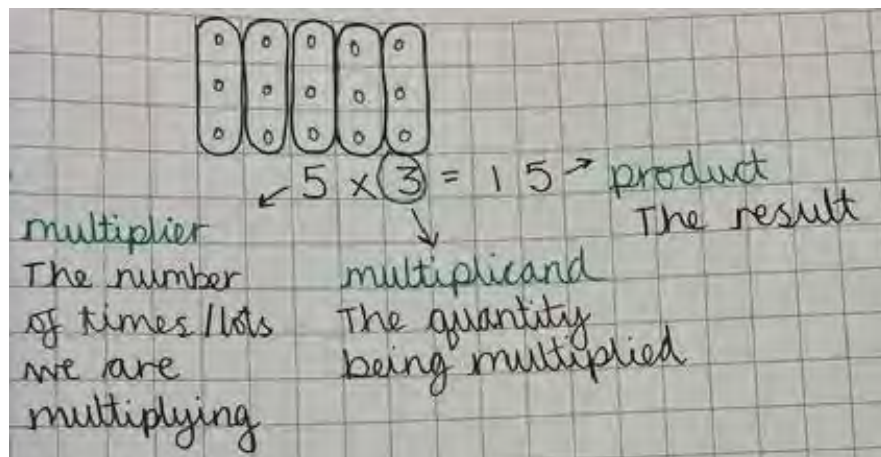 5 × 3 = 15 → product
The result
multiplier
The number
of times/lots
we are
multiplying
multiplicand
The quantity
being multiplied